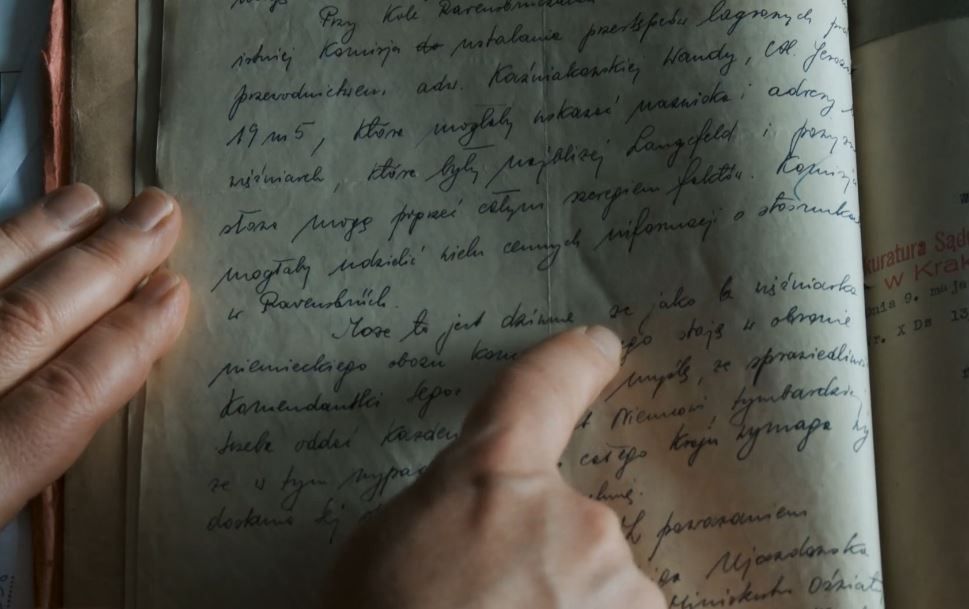 Przy Kole Ravensbrüczanek
istniej Komisja do ustalania przestępców lagrowych
przewodnictwem. adw. Kaźniakowskiej Wandy, Al. Jeroz
19 m 5, które mogłaby wskazać nazwiska i adresy
więźniarek, które były najbliżej Langefeld i
mogą poprzeć całym szeregiem faktów. Komisja
mogłaby udzielić wielu cennych informacji o stosunkac
w Ravensbrück.
Może to jest dziwne że jako b. więźniarka
niemieckiego obozu stoję w obronie
Komendantki tegoż myślę, że sprawiedliw
trzeba oddać każdem Niemcowi, tymbardziej
że w tym wypad całego Kraju wymaga by
dostała
Z poważaniem
Ujazdowska
Ministerstw Oświat
kuratura Sąd
w Krak
dnia 9. maja
r. X Ds 13